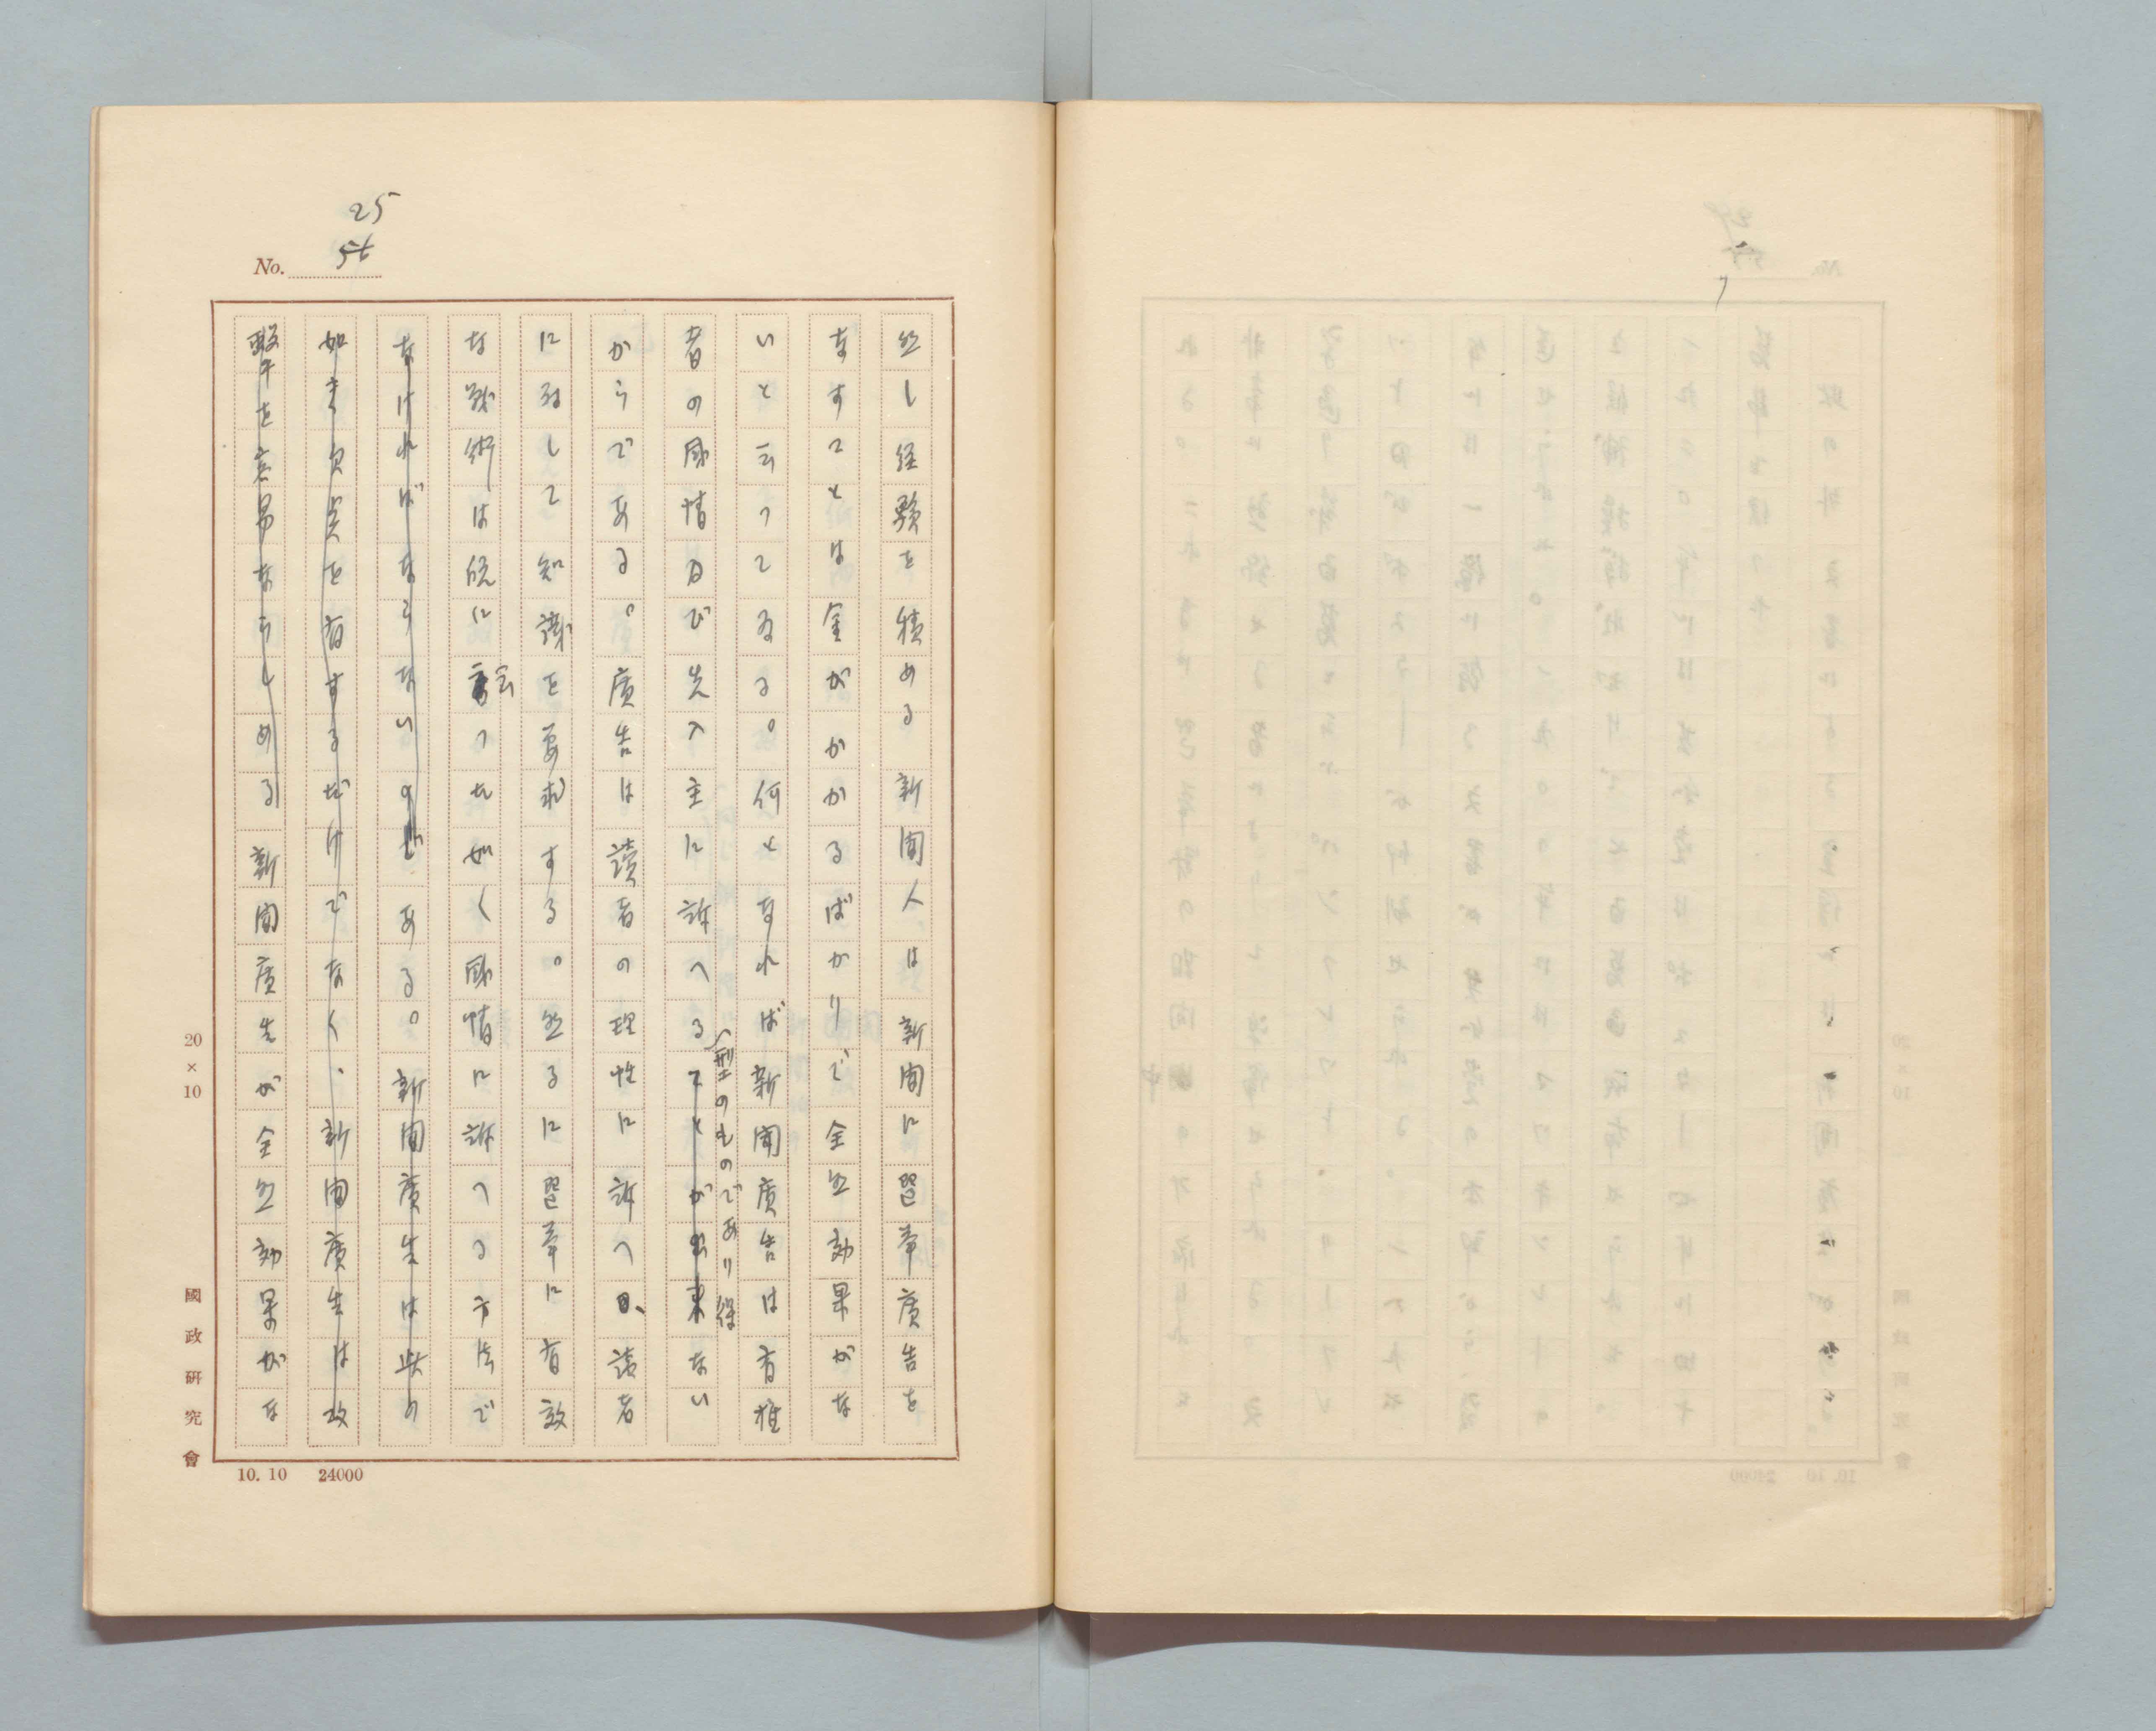 25
54
No.
然し経験を積める新聞人は新聞に選挙廣告を
なすことは金がかかるばかりで全然効果がな
いと云つてゐる。何となれば新聞廣告は有権
者の感情及び先入主に訴へる
型のものであり得
ことが出来ない
からである。廣告は讀者の理性に訴へ、讀者
に対して知識を要求する。然るに選挙に有効
な戦術は既に
云
つた如く感情に訴へる方法で
なければならないのである。新聞廣告は此の
如き欠点を有するだけでなく、新聞廣告は攻
撃を容易ならしめる新聞廣告が全然効果がな
20×10
國政研究會
10.10 24000